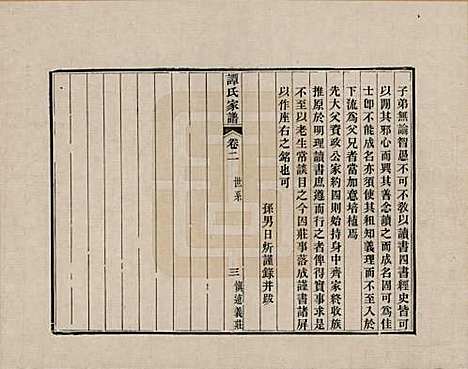 子弟無論智愚不可不敎以讀書四書經史皆可
以閑其邪心而興其善念讀之而成名固可為
士即不能成名亦須使其粗知義理而不至入於
下流為父兄者當加意培植焉
先大父資政公家約四則始持身中齊家終收族
推原於明理讀書庶遵而行之者俾得實事求是
不至以老生常談目之今因莊事落成謹書諸屏
以作座右之銘也可
孫男日所謹錄并跋
譚氏家譜
卷二
世系
三
慎遠義莊